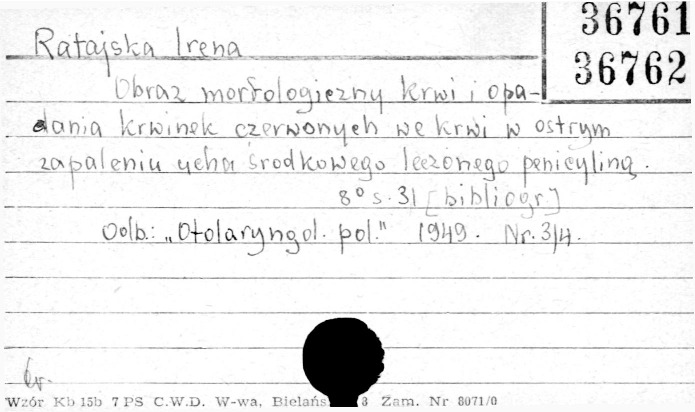 36761
36762
Ratajska Irena
Obraz morfologiczny krwi i opa-
dania krwinek czerwonych we krwi w ostrym
zapaleniu ucha środkowego leczonego penicyliną.
8° s. 31 [bibliogr.]
Odb.: „Otolaryngol. pol." 1949. Nr. 3/4.
Wzór Kb 15b 7 PS C.W.D. W-wa, Bielańs 3 Zam. Nr 8071/0